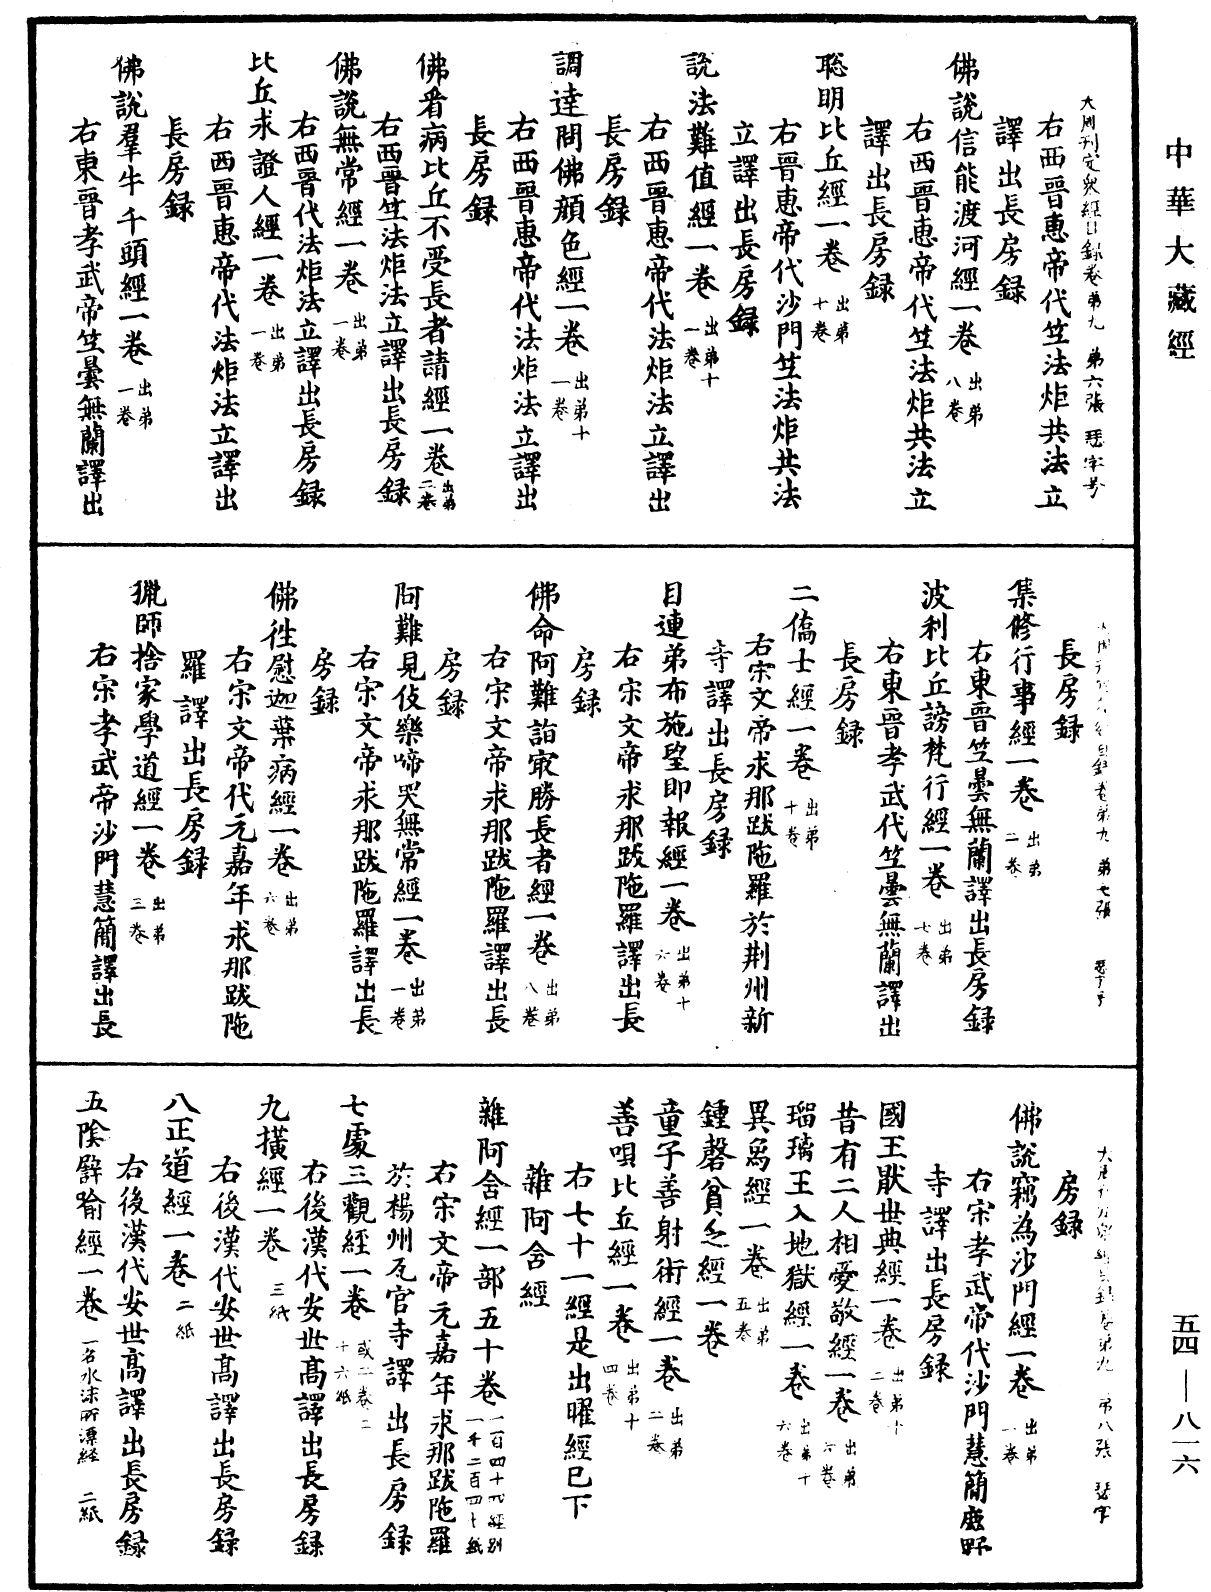 中華大藏經
大周刊定衆經目録卷第九　第六張
右西晉惠帝代竺法炬共法立
譯出長房録
佛説信能渡河經一卷 出第八卷
右西晉惠帝代竺法炬共法立
譯出長房録
聡明比丘經一卷 出第十卷
右晉惠帝代沙門竺法炬共法
立譯出長房録
説法難值經一卷 出第十一卷
右西晉惠帝代法炬法立譯出
長房録
調達問佛顔色經一卷 出第十一卷
右西晉惠帝代法炬法立譯出
長房録
佛看病比丘不受長者請經一卷 出第二卷
右西晉竺法炬法立譯出長房録
佛説無常經一卷 出第一卷
右西晉代法炬法立譯出長房録
比丘求證人經一卷 出第一卷
右西晉惠帝代法炬法立譯出
長房録
佛説羣牛千頭經一卷 出第一卷
右東晉孝武帝竺曇無蘭譯出
長房録
集修行事經一卷 出第二卷
右東晉竺曇無蘭譯出長房録
波利比丘謗梵行經一卷 出第七卷
右東晉孝武代竺曇無蘭譯出
長房録
二僑士經一卷 出第十卷
右宋文帝求那跋陁羅於荆州新
寺譯出長房録
目連弟布施望即報經一卷 出第十六卷
右宋文帝求那跋陁羅譯出長
房録
佛命阿難詣㝡勝長者經一卷 出第八卷
右宋文帝求那跋陁羅譯出長
房録
阿難見伎樂啼哭無常經一卷 出第一卷
右宋文帝求那跋陁羅譯出長
房録
佛徃慰迦葉病經一卷 出第六卷
右宋文帝代元嘉年求那跋陁
羅譯出長房録
獵師捨家學道經一卷 出第三卷
右宋孝武帝沙門慧簡譯出長
房録
佛説竊為沙門經一卷 出第一卷
右宋孝武帝代沙門慧簡鹿野
寺譯出長房録
國王厭世典經一卷 出第十二卷
昔有二人相愛敬經一卷 出第六卷
瑠璃王入地獄經一卷 出第十六卷
異爲經一卷 出第五卷
鍾磬貧乏經一卷
童子善射術經一卷 出第二卷
善唄比丘經一卷 出第十四卷
右七十一經是出曜經已下
雜阿含經
雜阿含經一部五十卷 一百四十四經别一千二百四十紙
右宋文帝元嘉年求那跋陁羅
於楊州瓦官寺譯出長房録
七處三觀經一卷 或二卷二十六紙
右後漢代安世髙譯出長房録
九横經一卷 三紙
右後漢代安世髙譯出長房録
八正道經一卷 二紙
右後漢代安世髙譯出長房録
五陰辟喻經一卷 一名水沫所漂經　二紙
五四—八一六